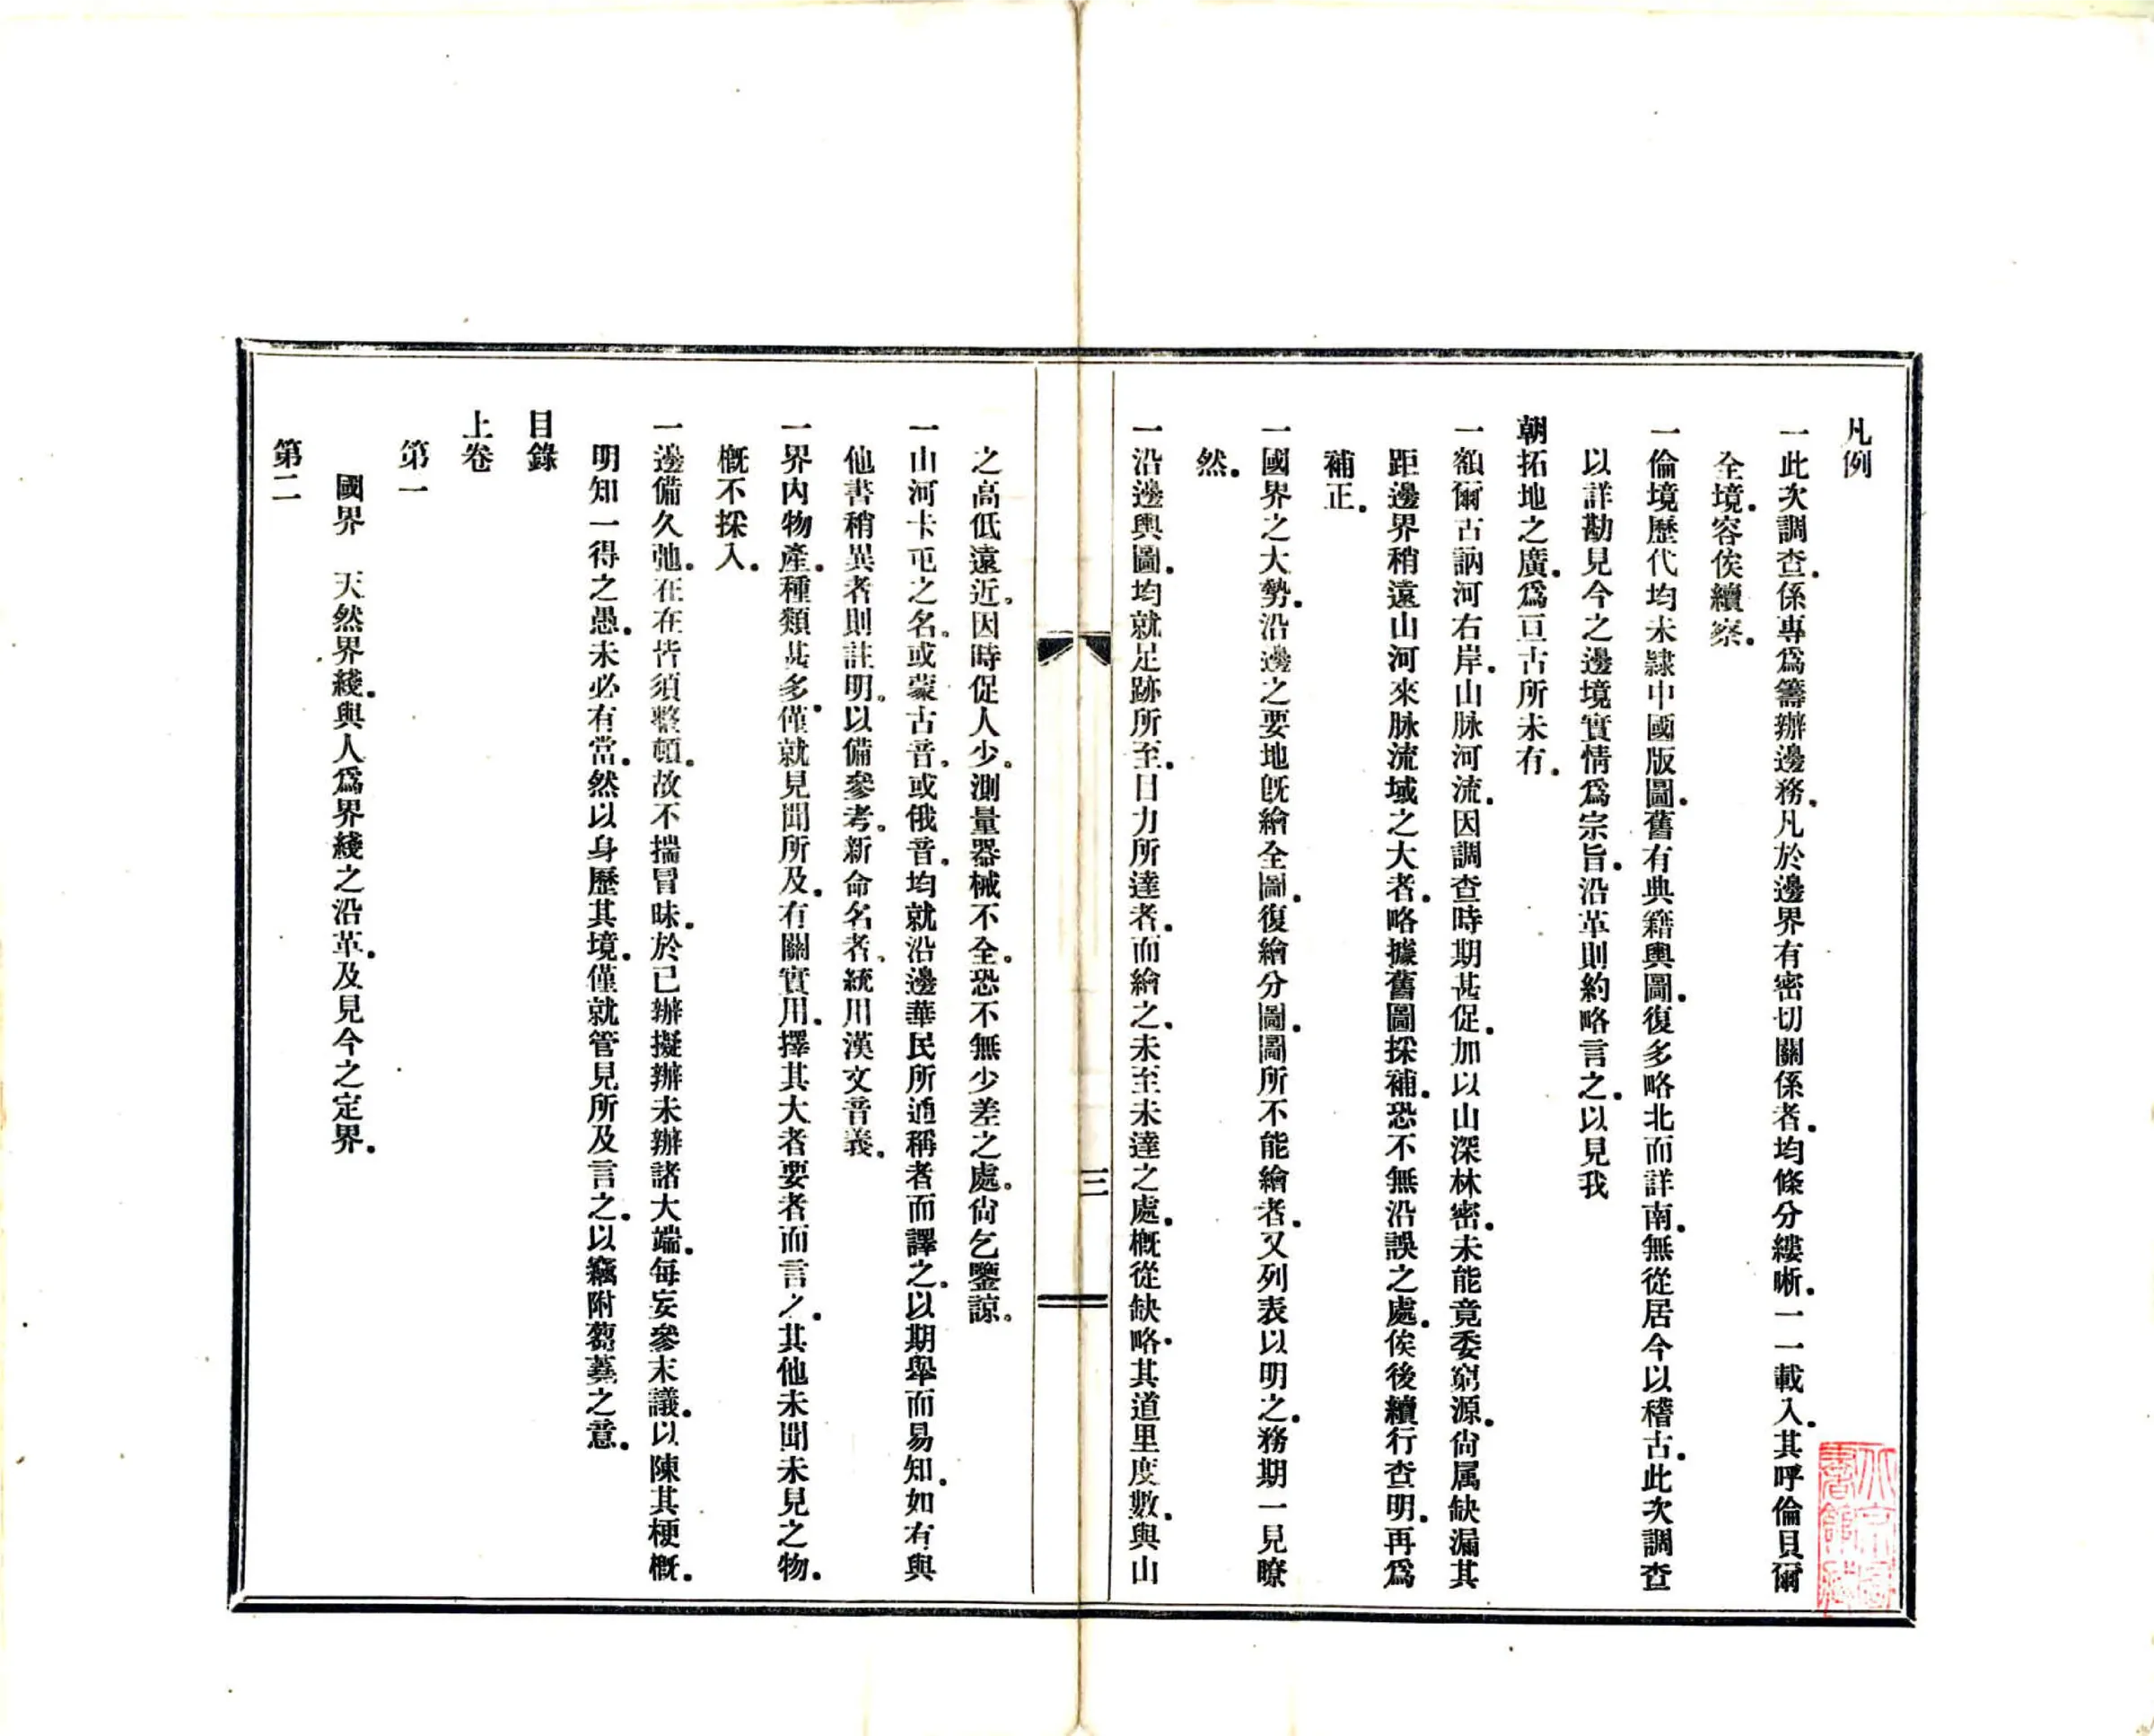 凡例
一此次調查．係專爲籌辦邊務．凡於邊界有密切關係者．均條分縷晰．一一載入．其呼倫貝爾
全境．容俟續察．
一倫境歷代均未隸中國版圖．舊有典籍輿圖．復多略北而詳南．無從居今以稽古．此次調查
以詳勘見今之邊境實情爲宗旨．沿革則約略言之．以見我
朝拓地之廣．爲亘古所未有．
一額爾古訥河右岸．山脉河流．因調查時期甚促．加以山深林密．未能竟委窮源．尙属缺漏其
距邊界稍遠山河來脉流域之大者．略據舊圖採補．恐不無沿誤之處．俟後續行查明．再爲
補正．
一國界之大勢．沿邊之要地旣繪全圖．復繪分圖．圖所不能繪者．又列表以明之．務期一見瞭
然．
一沿邊輿圖．均就足跡所至．目力所達者．而繪之．未至未達之處．槪從缺略．其道里度數．與山
三
之高低遠近。因時促人少。測量器械不全。恐不無少差之處。尙乞鑒諒。
一山河卡屯之名。或蒙古音．或俄音．均就沿邊華民所通稱者而譯之．以期舉而易知．如有與
他書稍異者則註明。以備參考。新命名者．統用漢文音義．
一界內物產．種類甚多．僅就見聞所及．有關實用．擇其大者要者而言之．其他未聞未見之物．
槪不採入．
一邊備久弛．在在皆須整頓．故不揣冒昧．於已辦擬辦未辦諸大端．每妄參末議．以陳其梗槪．
明知一得之愚．未必有當．然以身歷其境．僅就管見所及言之．以竊附蒭蕘之意．
目錄
上卷
第一
國界　天然界綫．與人爲界綫之沿革．及見今之定界．
第二